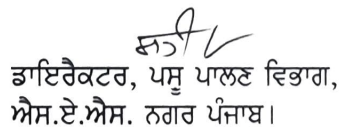 ਡਾਇਰੈਕਟਰ, ਪਸੂ ਪਾਲਣ ਵਿਭਾਗ,
ਐਸ.ਏ.ਐਸ. ਨਗਰ ਪੰਜਾਬ।